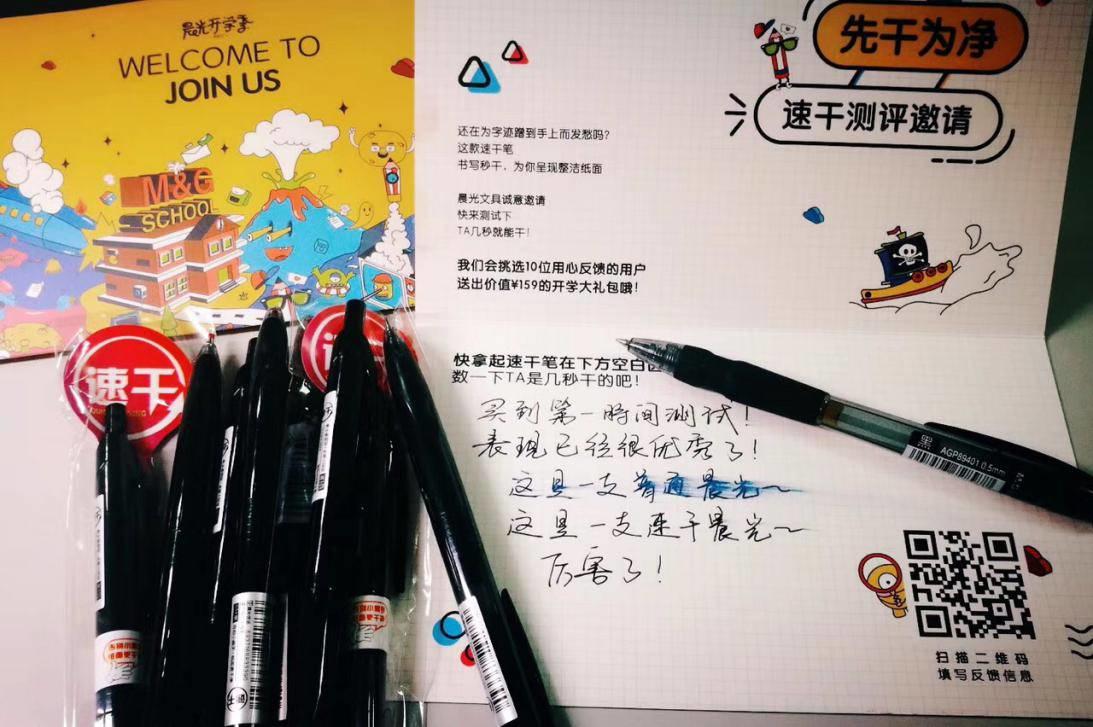 晨光开学季
WELCOME TO
JOIN US
M&G
SCHOOL
先干为净
速干测评邀请
还在为字迹蹭到手上而发愁吗？
这款速干笔
书写秒干，为你呈现整洁纸面
晨光文具诚意邀请
快来测试下
TA几秒就能干！
我们会挑选10位用心反馈的用户
送出价值¥159的开学大礼包哦！
快拿起速干笔在下方空白
数一下TA是几秒干的吧！
买到第一時间测试！
表现已经很优秀了！
这是一支普通晨光～
这是一支速干晨光～
厉害了！
速干
黑 AGP89401 0.5mm
扫描二维码
填写反馈信息